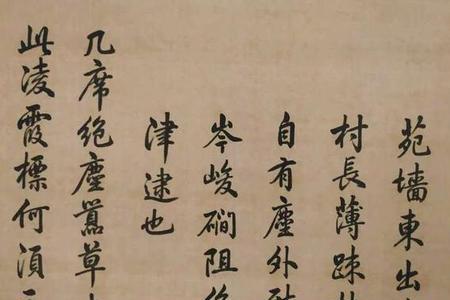 苑墙東出
村長薄踈
自有塵外
岑峻磵阻
津逮也
几席絶塵囂草
此凌霞標何湏